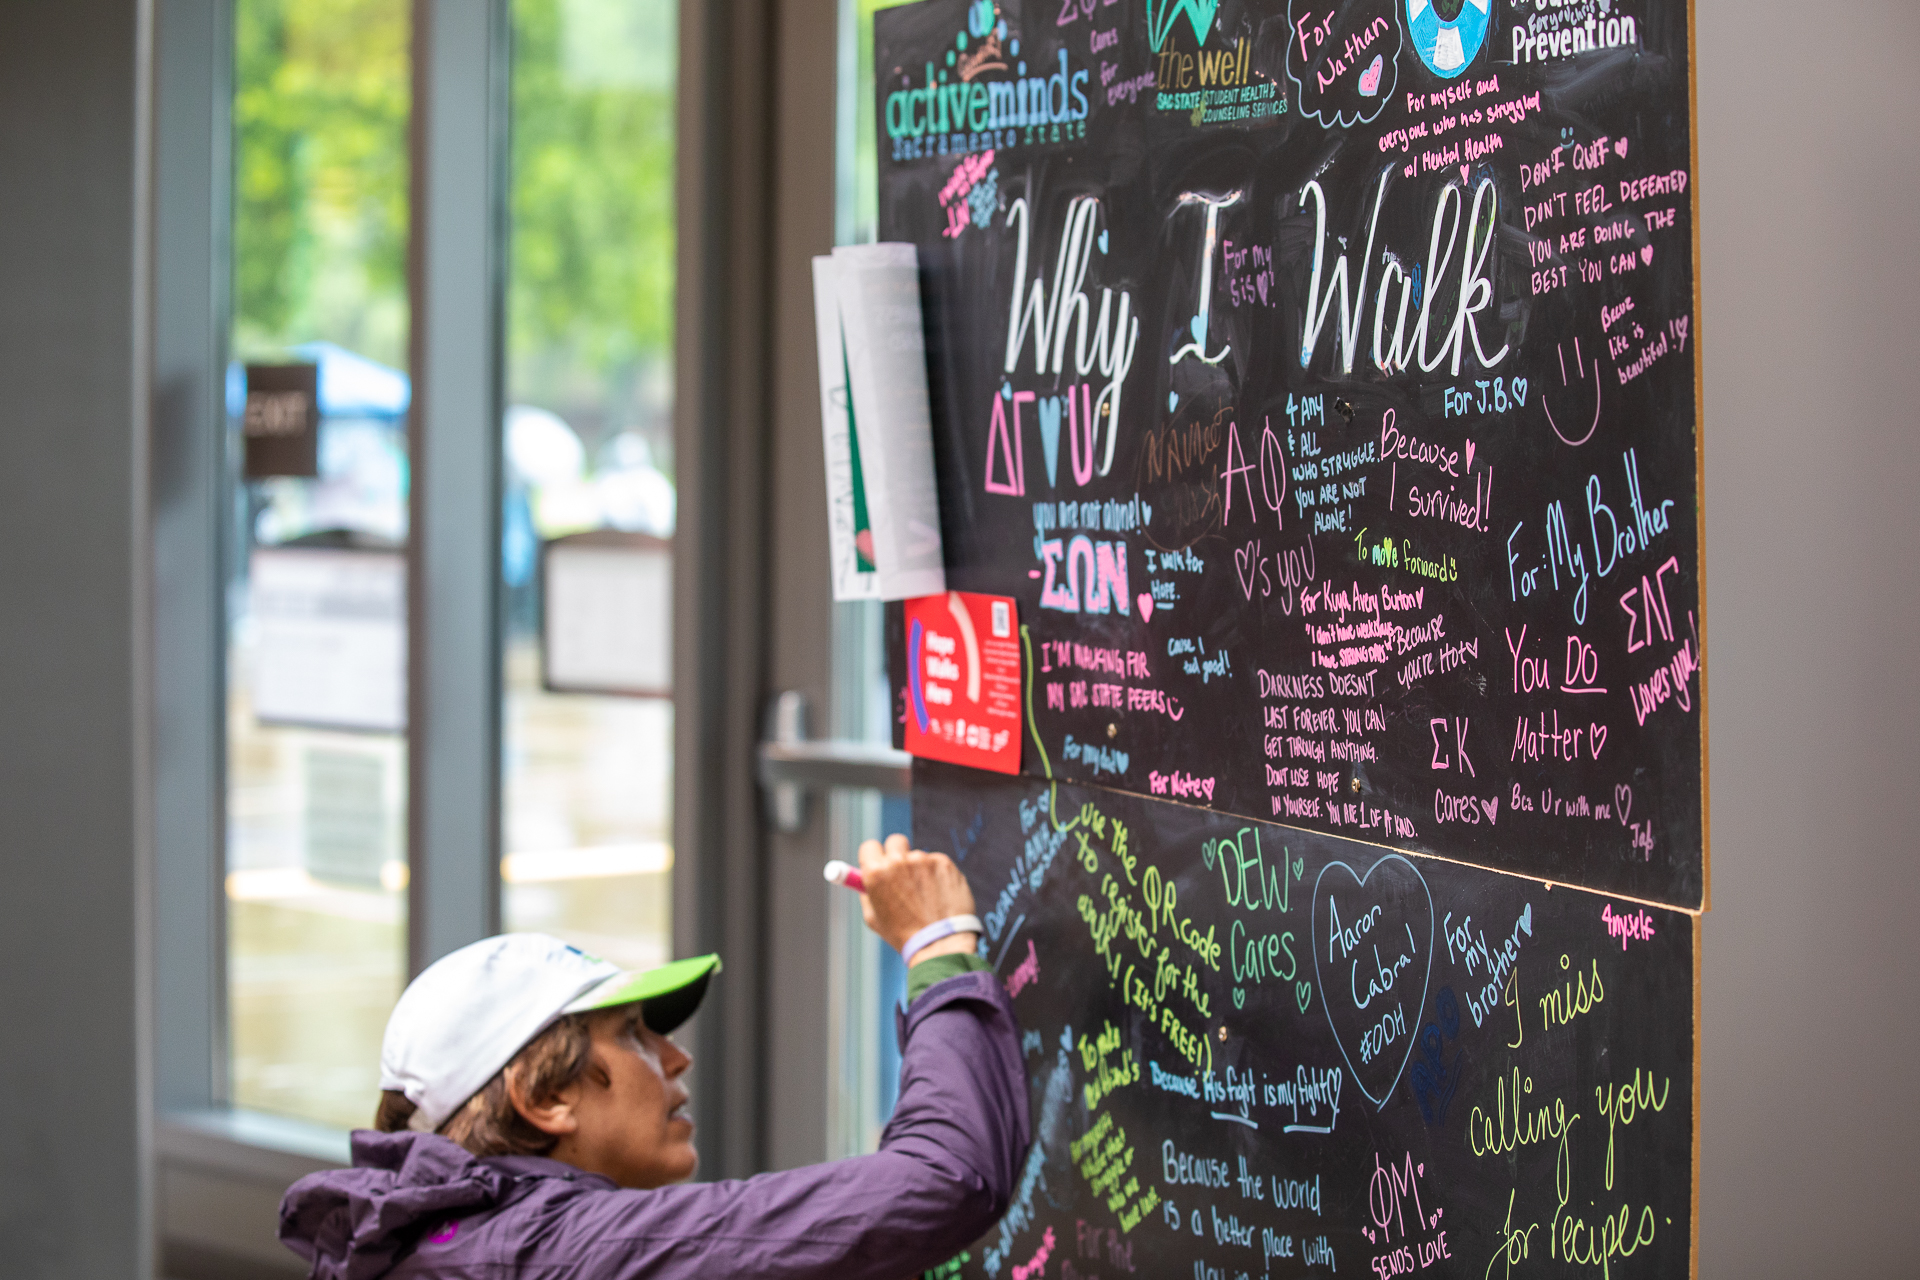 ΣΦΕ
Cares
for
everyone
activeminds
Sacramento State
the well
SAC STATE STUDENT HEALTH &
COUNSELING SERVICES
For
Nathan
For you Chris
Prevention
For myself and
everyone who has struggled
w/ Mental Health
DON'T QUIT
DON'T FEEL DEFEATED
YOU ARE DOING THE
BEST YOU CAN
Why I Walk
For my
sis
Becuz
life is
beautiful!
For J.B.
ΔΓ U
you are not alone!
-ΣΩΝ
ΑΦ
♡'s you
4 Any
& ALL
WHO STRUGGLE.
YOU ARE NOT
ALONE!
Because
I survived!
To move forward
I walk for
HOPE.
For Kuya Avery Burton
"I don't have weekdays
I have STRONG DAYS."
Because
you're Hot
For: My Brother
ΣΛΓ
Loves you!
You DO
Matter
I'M WALKING FOR
MY SAC STATE PEERS
DARKNESS DOESN'T
LAST FOREVER. YOU CAN
GET THROUGH ANYTHING.
DONT LOSE HOPE
IN YOURSELF. YOU ARE 1 OF A KIND.
ΣΚ
Cares
Bcz U r with me
For my dad
For Nate
Hope
Walks
Here
EXIT
use the
QR code
to register for the
event! (It's FREE!)
DEW
Cares
Aaron
Cabral
#ODH
For
my
brother
4myself
I miss
calling you
for recipes.
APO
Because His fight is my fight
Because the world
is a better place with
ΦΜ
SENDS LOVE
For the